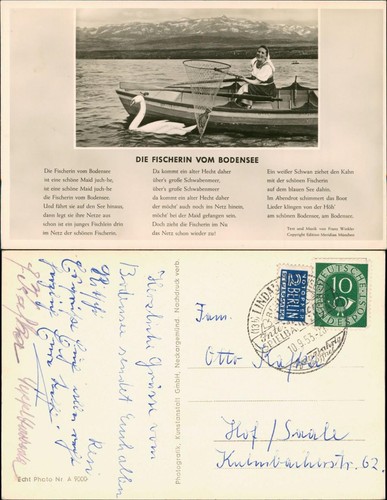 DIE FISCHERIN VOM BODENSEE
Die Fischerin vom Bodensee
ist eine schöne Maid juch-he,
ist eine schöne Maid juch-he
die Fischerin vom Bodensee.
Und fährt sie auf den See hinaus,
dann legt sie ihre Netze aus
schon ist ein junges Fischlein drin
im Netz der schönen Fischerin.
Da kommt ein alter Hecht daher
über's große Schwabenmeer
über's große Schwabenmeer
da kommt ein alter Hecht daher
der möcht' auch noch ins Netz hinein,
möcht' bei der Maid gefangen sein.
Doch zieht die Fischerin im Nu
das Netz schon wieder zu!
Ein weißer Schwan ziehet den Kahn
mit der schönen Fischerin
auf dem blauen See dahin.
Im Abendrot schimmert das Boot
Lieder klingen von der Höh'
am schönen Bodensee, am Bodensee.
Text und Musik von Franz Winkler
Copyright Edition Meridian München
Herzliche Grüsse vom
Bodensee sendet Euch allen
Photografik, Kunstanstalt GmbH, Neckargemünd. Nachdruck verb.
Echt Photo Nr. A 9000
(13b) LINDAU
10.9.53
NOTOPFER
2 BERLIN
STEUERMARKE
DEUTSCHE
BUNDESPOST
10
Fam.
Otto
Hof / Saale
Kulmbacherstr. 62.